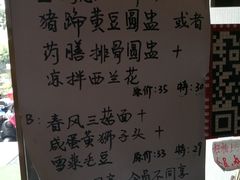 猪蹄黄豆圆盅 或者
药膳排骨圆盅 +
凉拌西兰花
原价:35 特:30
B:
春风三菇面 +
咸蛋黄狮子头 +
雪菜毛豆
原价:33 特:29
会员不同享